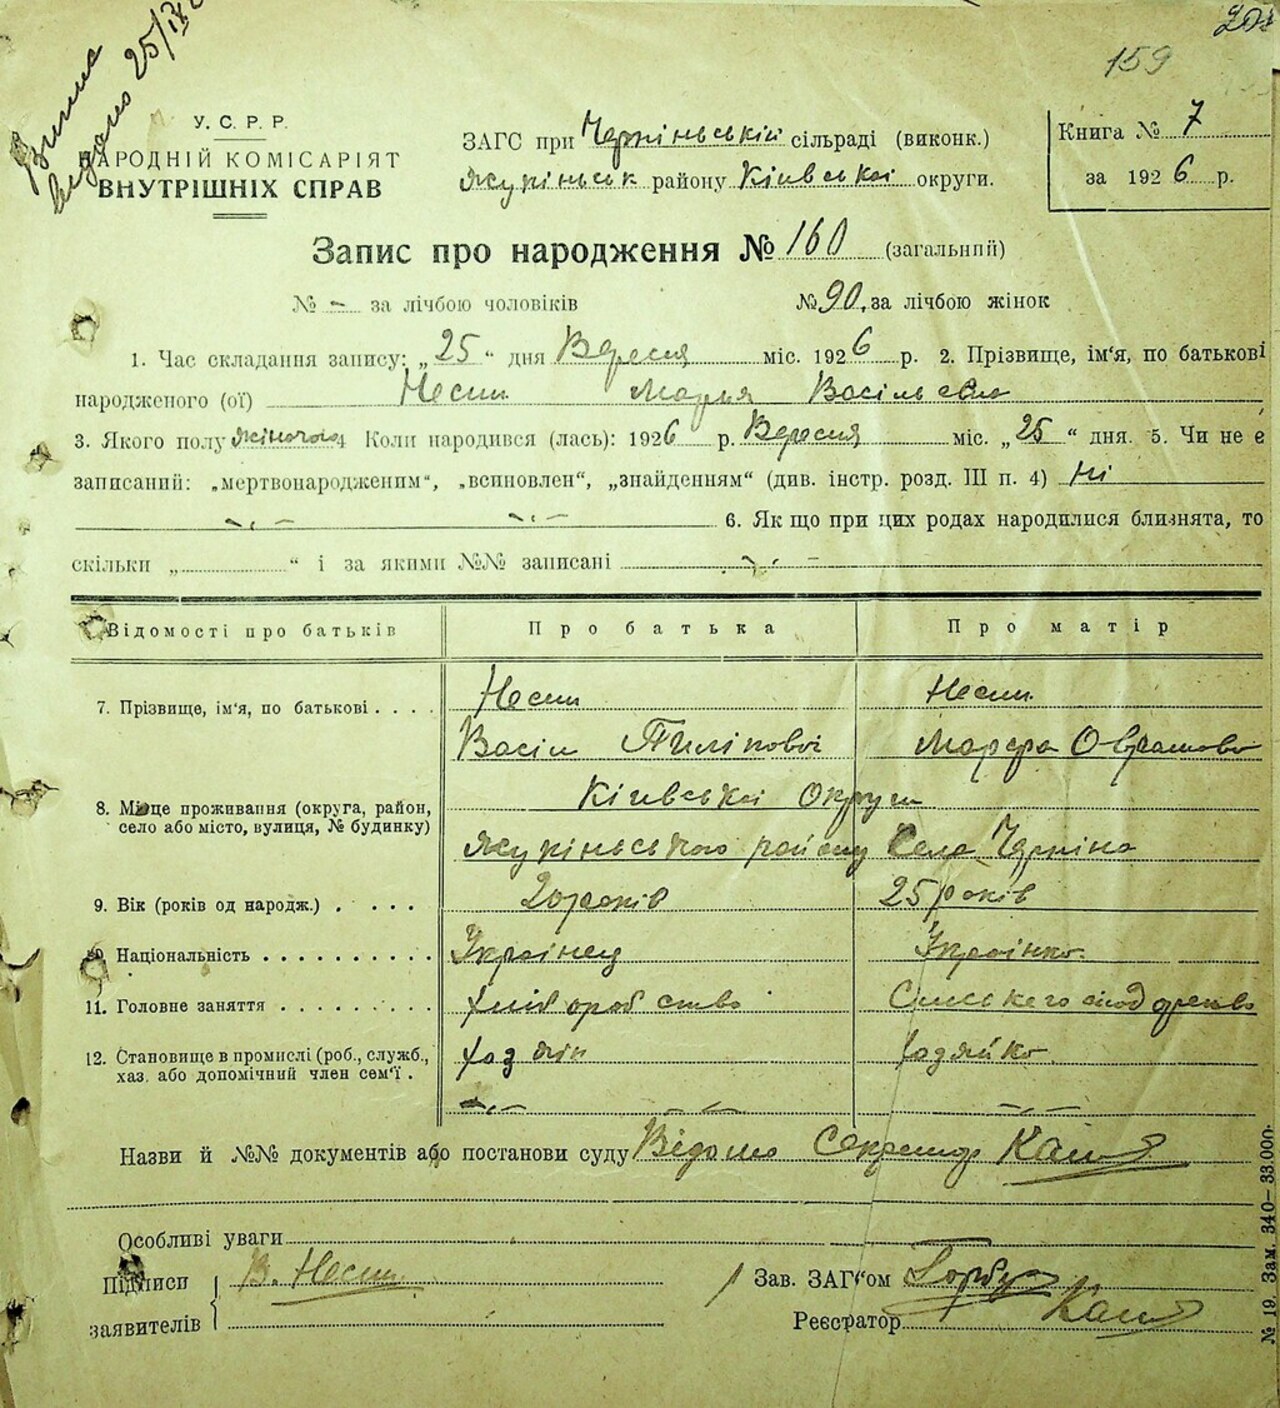 Виписка
видано 25/IX
159
У. С. Р. Р.
НАРОДНІЙ КОМІСАРІЯТ
ВНУТРІШНІХ СПРАВ
ЗАГС при сільраді (виконк.)
району Київської округи.
Книга № 7
за 1926 р.
Запис про народження № 160 (загальний)
№ – за лічбою чоловіків № 90 за лічбою жінок
1. Час складання запису: „25“ дня Вересня міс. 1926 р. 2. Прізвище, ім'я, по батькові
народженого (ої) Несин Марья Васільевна
3. Якого полу жіночого 4 Коли народився (лась): 1926 р. Вересня міс. „25“ дня. 5. Чи не є
записаний: „мертвонародженим“, „всиновлен“, „знайденням“ (див. інстр. розд. III п. 4) Ні
6. Як що при цих родах народилися близнята, то
скільки „ “ і за якими №№ записані
Відомості про батьків Про батька Про матір
7. Прізвище, ім'я, по батькові . . . . Несин Несин
Васіл Марфа
8. Місце проживання (округа, район,
село або місто, вулиця, № будинку)
Київської Округи
району Села
9. Вік (років од народж.) . . . . років 25 років
10. Національність . . . . . . . . . . Українец Українка
11. Головне заняття . . . . . . . . . хліборобство
12. Становище в промислі (роб., служб.,
хаз. або допомічний член сем'ї .
хазяїн хазяйка
Назви й №№ документів або постанови суду Відомо Секретар
Особливі уваги
Підписи
заявителів
В. Несин
Зав. ЗАГС'ом
Реєстратор
№ 19. Зам. 340—33.000.